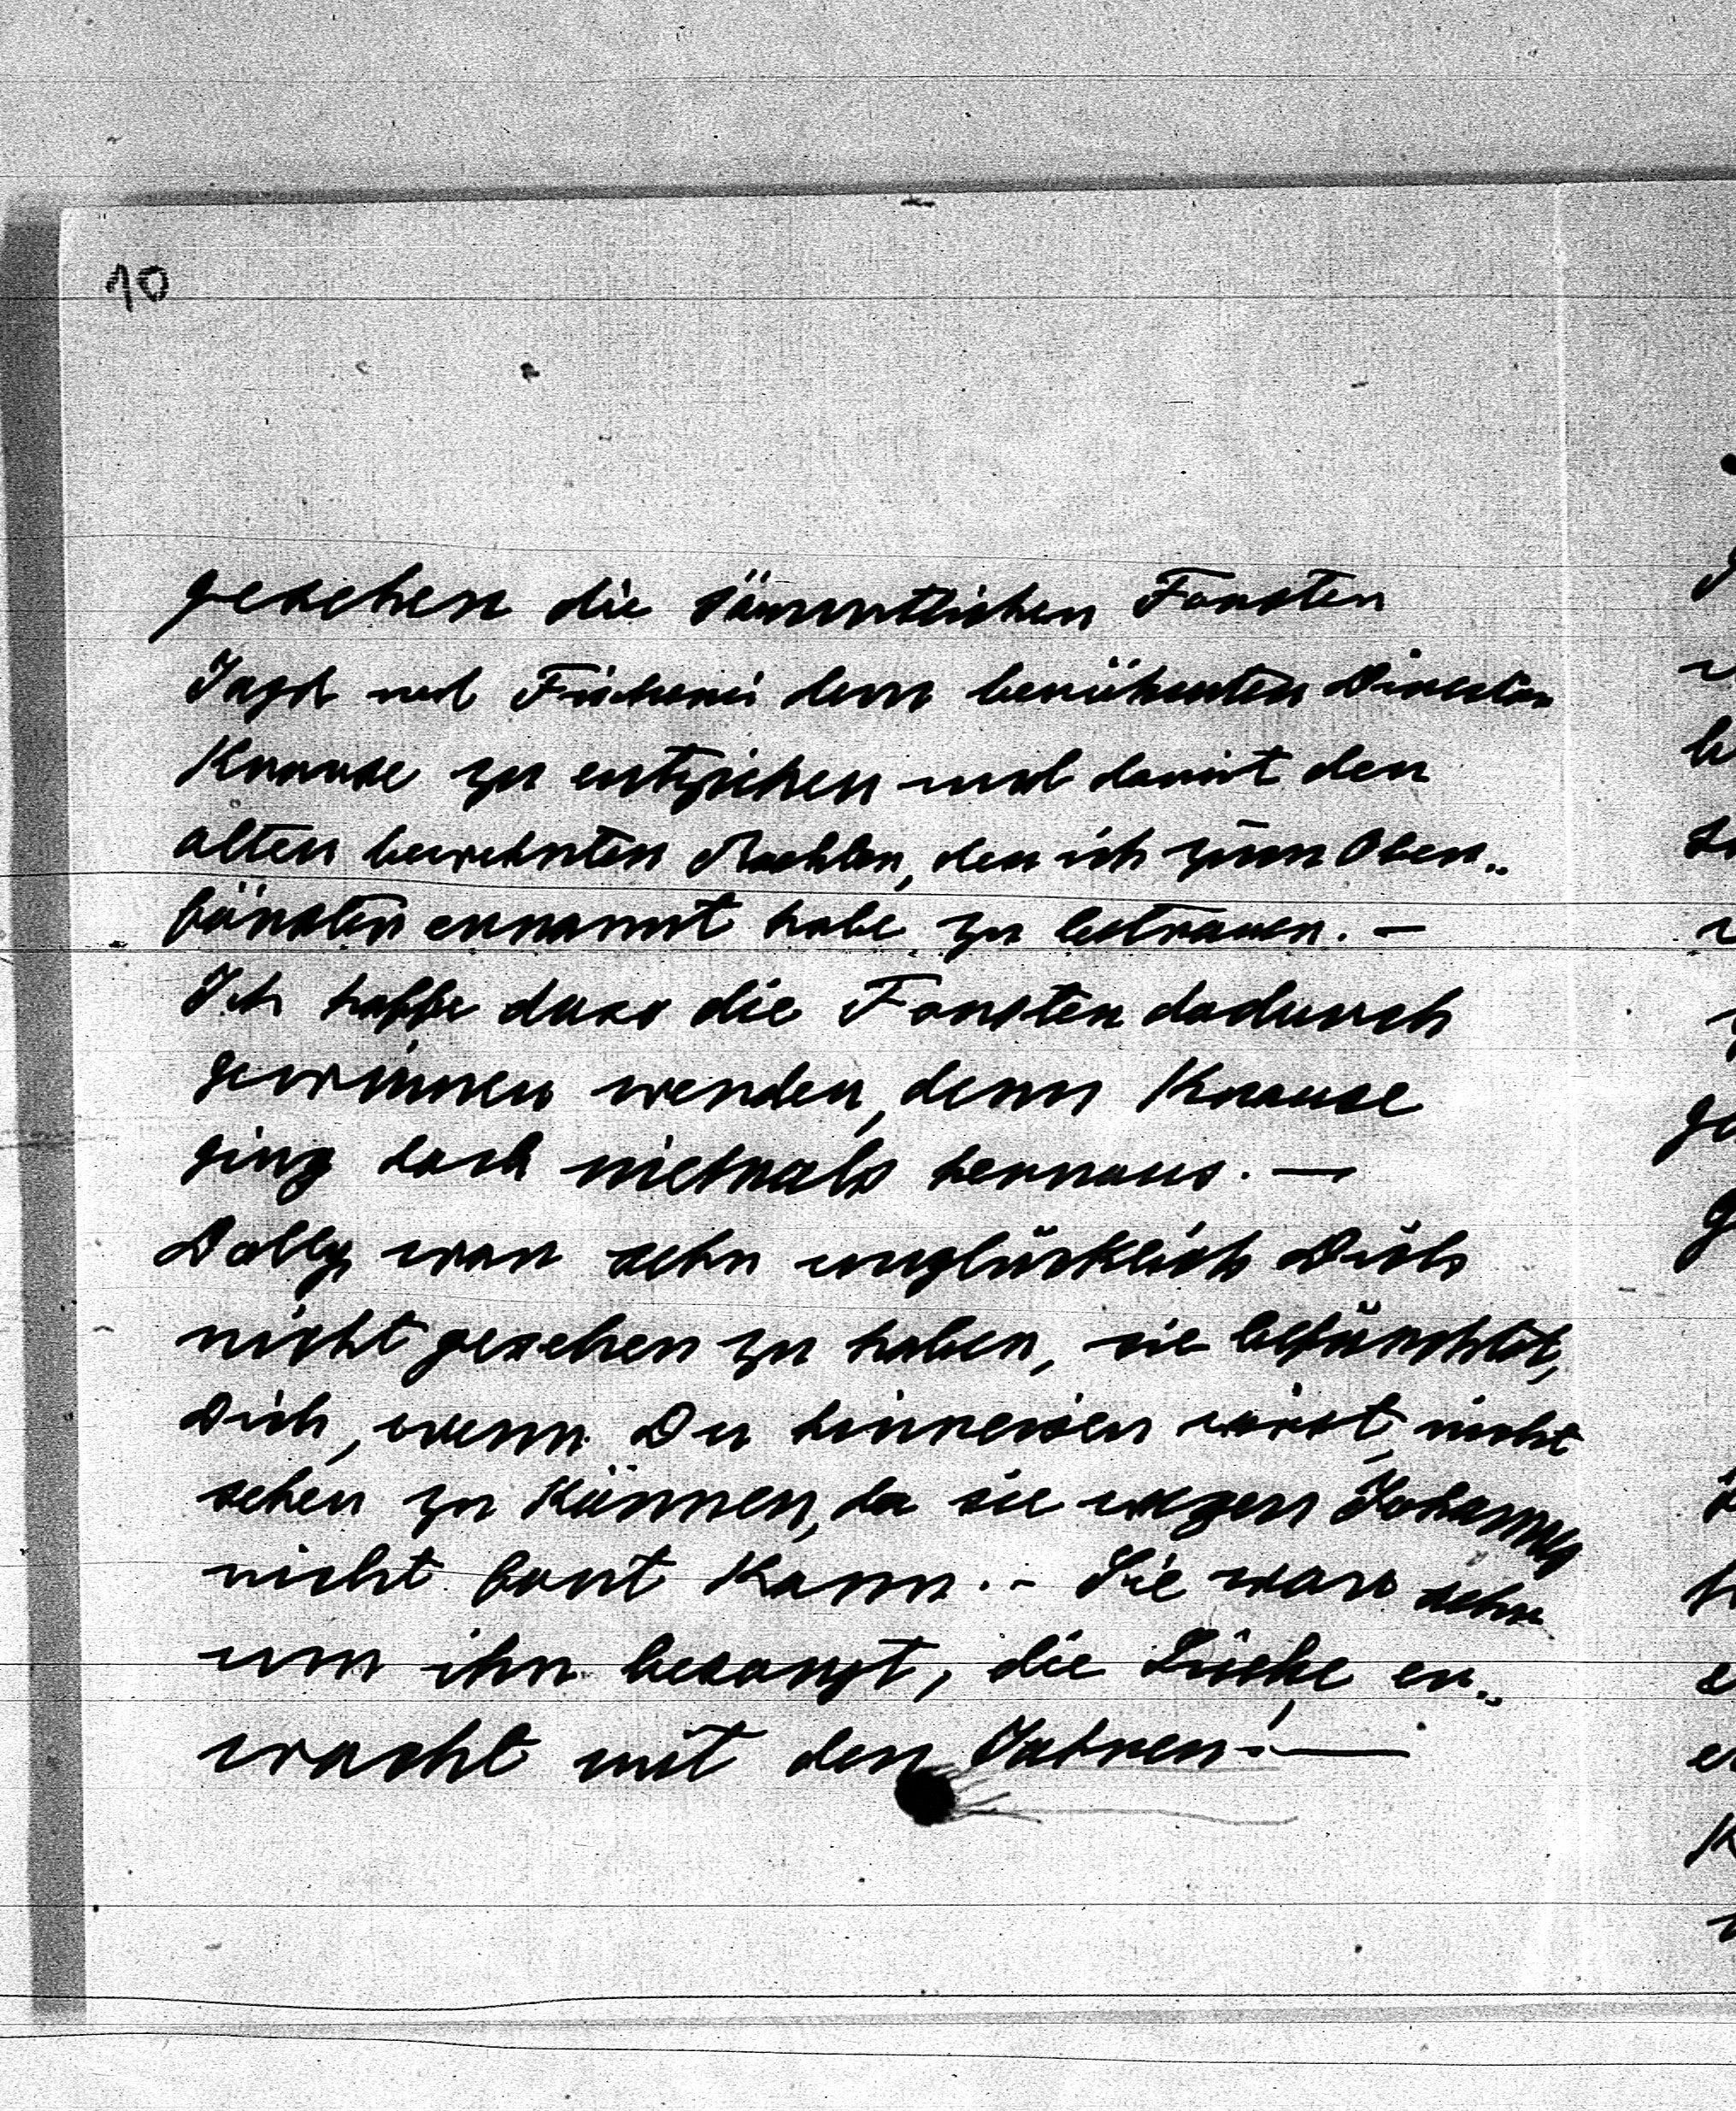 10
gesehen die sämmtlichen Forsten
Jagd und Fischerei dem berühmten Director
Krause zu entziehen und damit den
alten bewährten den ich zum Ober..
förster ernannt habe zu betrauen. –
Ich hoffe dass die Forsten dadurch
gewinnen werden, denn Krause
ging doch niemals heraus. —
Dolly war sehr unglücklich Dich
nicht gesehen zu haben, sie befürchtet,
Dich, wenn Du hinreisen wirst, nicht
sehen zu können, da sie wegen
nicht fort kann. – Sie war sehr
um ihn besorgt, die Liebe er..
wacht mit den Jahren. —